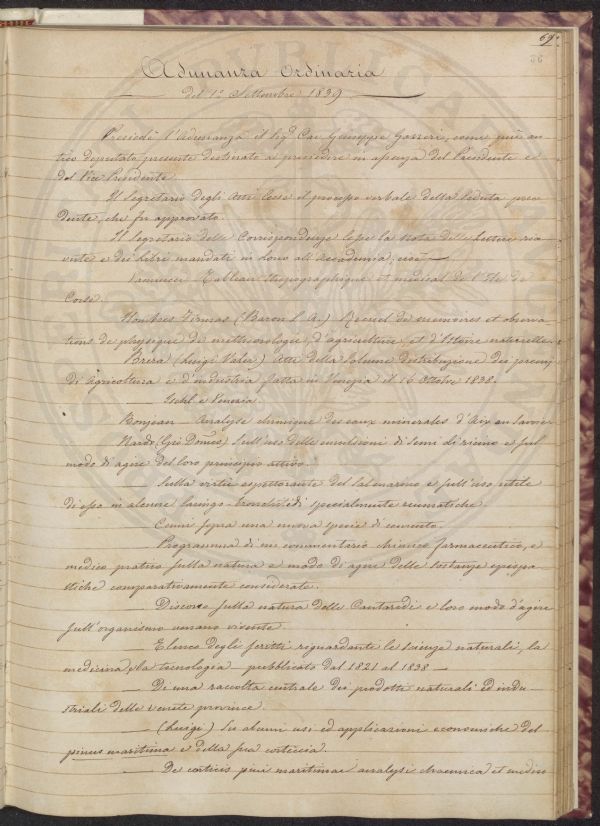 69.
36
Adunanza Ordinaria
del 1° Settembre 1839
Presiedè l'Adunanza il Sigr. Cav. Giuseppe Gazzeri, come più an-
tico deputato presente destinato a presiedere in assenza del Presidente e
del Vice Presidente.
Il Segretario degli Atti lesse il processo verbale della seduta prece-
dente, che fu approvato.
Il Segretario delle Corrispondenze lesse la nota delle lettere rice-
vute e dei libri mandati in dono all'Accademia, cioè
Vannucci Tableau topographique et medical de l'Ile de
Corse.
Hombres Firmas (Baron L. A.) Recueil de memoires et observa-
tions de physique, de meteorologie, d'agriculture, et d'histoire naturelle.
Brera (Luigi Valer.) Atti della solenne distribuzione dei premj
di Agricoltura e d'industria fatta in Venezia il 16 Ottobre 1838.
Ischl e Venezia.
Bonjean Analyse chimique des eaux minerales d'Aix en Savoie
Nardo (Gio. Domco.) Sull'uso delle emulsioni di semi di ricino e sul
modo di agire del loro principio attivo.
Sulla virtù espettorante del sal marino e sull'uso utile
di esso in alcune laringo-bronchitidi specialmente reumatiche.
Cenni sopra una nuova specie di cemento.
Programma di un commentario chimico farmaceutico, e
medico pratico sulla natura e modo di agire delle sostanze epispa-
stiche comparativamente considerate.
Discorso sulla natura delle Cantaredi e loro modo d'agire
sull'organismo umano vivente.
Elenco degli scritti riguardante le scienze naturali, la
medicina, e la tecnologia pubblicato dal 1821 al 1838
De una raccolta centrale dei prodotti naturali ed indu-
striali delle venete province.
(Luigi) Su alcuni usi ed applicazioni economiche del
pinus maritima e della sua corteccia.
De corticis pini maritimae analysi chaemica et medico